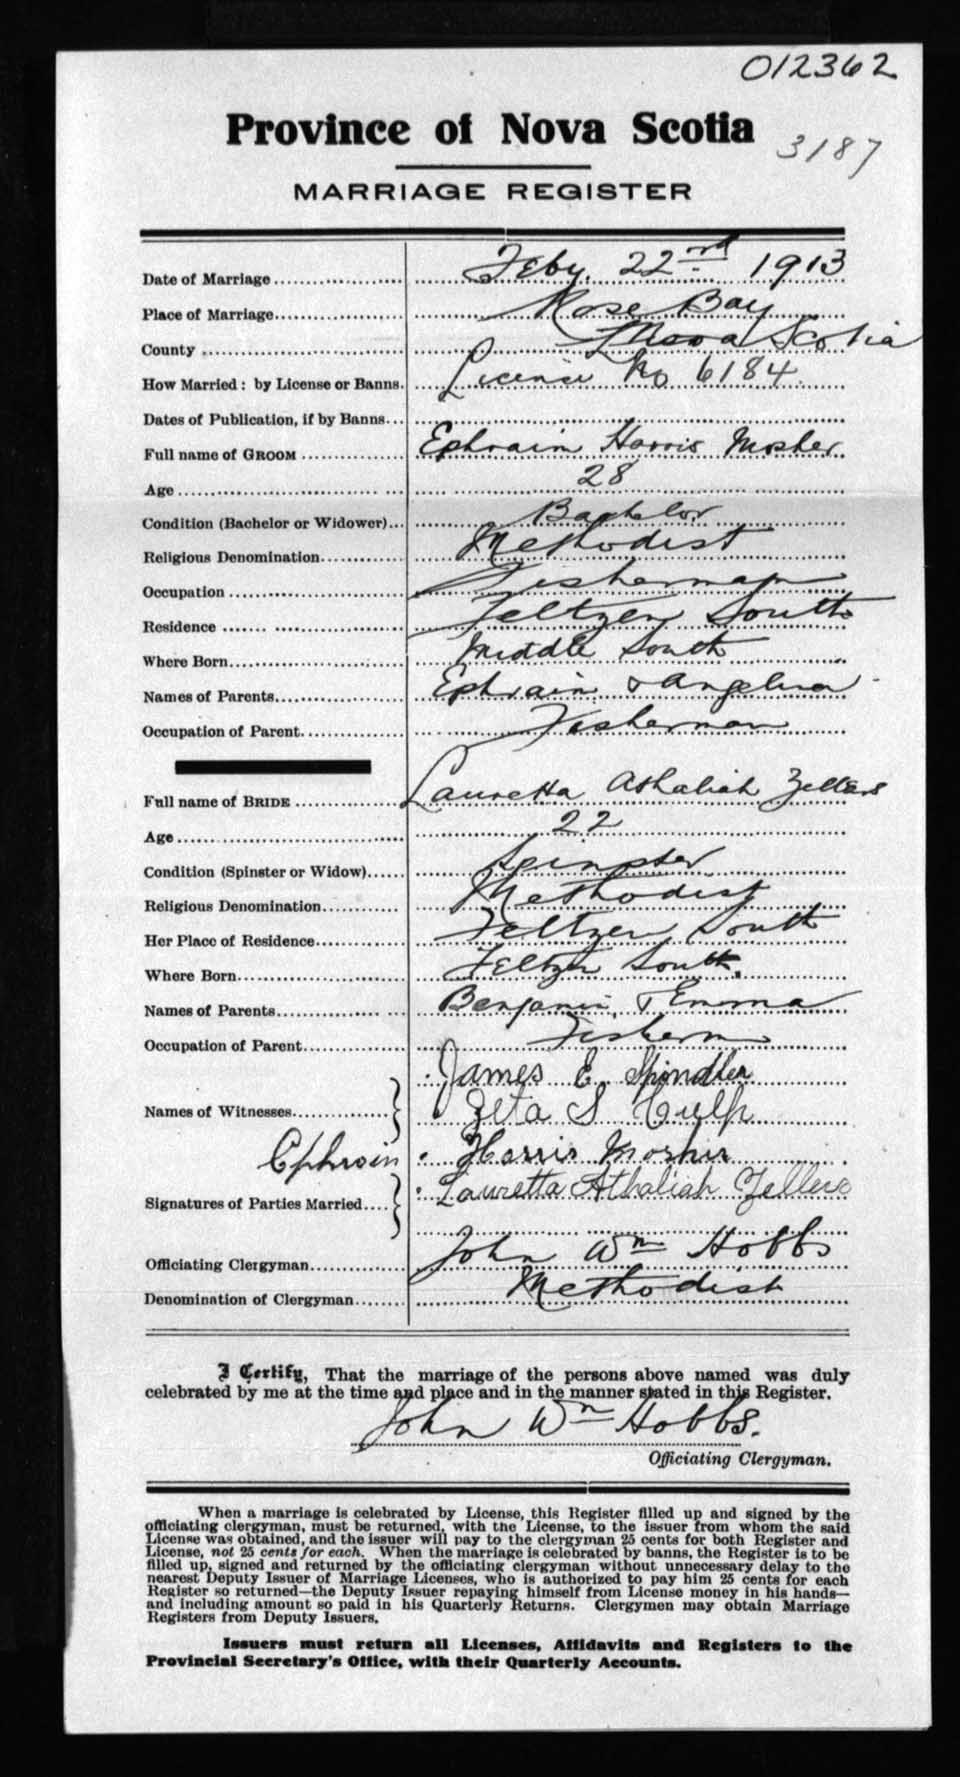 012362
Province of Nova Scotia
3187
MARRIAGE REGISTER
Date of Marriage Feby. 22nd 1913
Place of Marriage Rose Bay
County Nova Scotia
How Married: by License or Banns. License No 6184.
Dates of Publication, if by Banns
Full name of GROOM Ephraim Harris Mosher
Age 28
Condition (Bachelor or Widower) Bachelor
Religious Denomination Methodist
Occupation Fisherman
Residence Feltzen South
Where Born Middle South
Names of Parents Ephraim & Angelina
Occupation of Parent Fisherman
Full name of BRIDE Lauretta Athaliah Zellers
Age 22
Condition (Spinster or Widow) Spinster
Religious Denomination Methodist
Her Place of Residence Feltzen South
Where Born Feltzen South.
Names of Parents Benjamin & Emma
Occupation of Parent Fisherm
James E Spindler
Names of Witnesses Zeta S Culp
Ephroin Harris Mosher
Signatures of Parties Married Lauretta Athaliah Zellers
Officiating Clergyman John Wm Hobbs
Denomination of Clergyman Methodist
I Certify, That the marriage of the persons above named was duly
celebrated by me at the time and place and in the manner stated in this Register.
John Wm Hobbs.
Officiating Clergyman.
When a marriage is celebrated by License, this Register filled up and signed by the
officiating clergyman, must be returned, with the License, to the issuer from whom the said
License was obtained, and the issuer will pay to the clergyman 25 cents for both Register and
License, not 25 cents for each. When the marriage is celebrated by banns, the Register is to be
filled up, signed and returned by the officiating clergyman without unnecessary delay to the
nearest Deputy Issuer of Marriage Licenses, who is authorized to pay him 25 cents for each
Register so returned—the Deputy Issuer repaying himself from License money in his hands—
and including amount so paid in his Quarterly Returns. Clergymen may obtain Marriage
Registers from Deputy Issuers.
Issuers must return all Licenses, Affidavits and Registers to the
Provincial Secretary's Office, with their Quarterly Accounts.